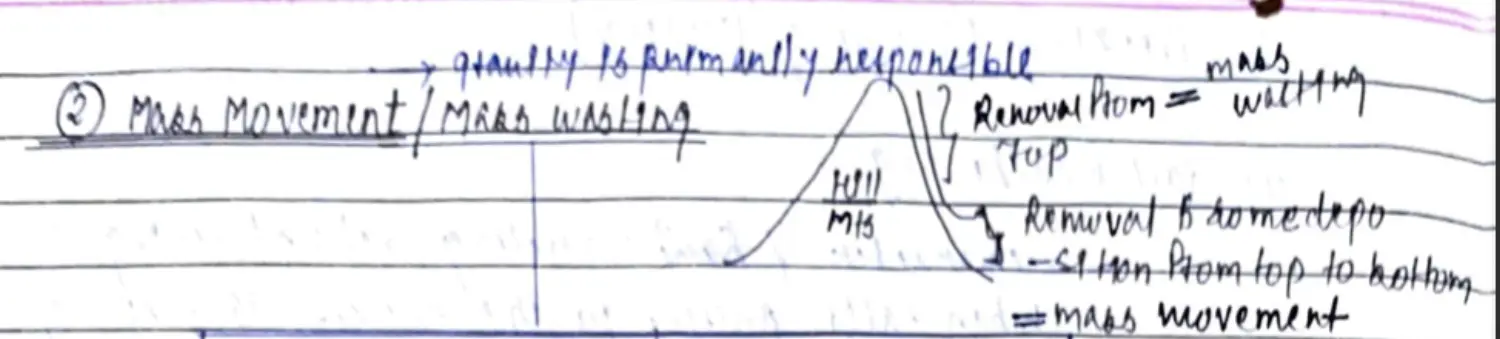 → gravity is primarily responsible
② Mass Movement / Mass wasting
Removal from top = mass wasting
Hill
Mts
Removal & some depo
-sition from top to bottom
= mass movement